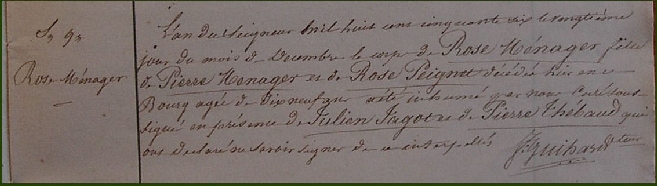 S. 9.
Rose Ménager
L'an du Seigneur mil huit cent cinquante six le vingtième
jour du mois de Decembre le corp de Rose Ménager fille
de Pierre Menager et de Rose Peignet décédée hier en ce
Bourg agée de dix neuf ans a été inhumé par nous Curé sous-
signé en présence de Julien Jugot et de Pierre Thébaud qui
ont declaré ne savoir signer de ce interpellés
Guihard